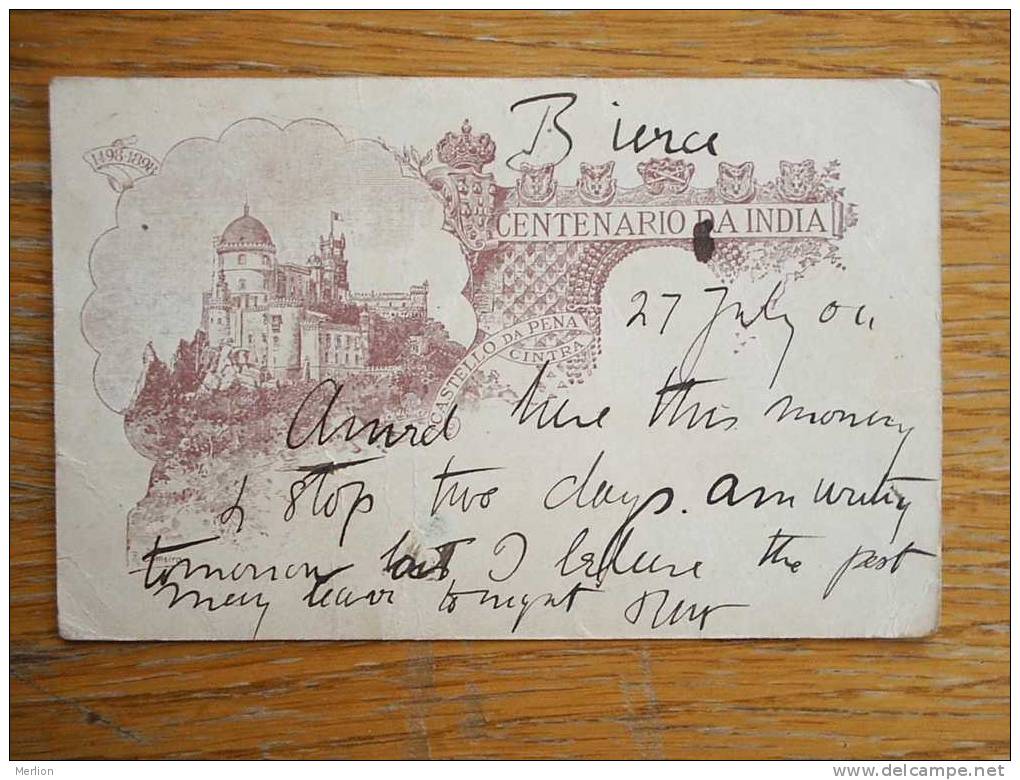 Bierce
1498-1898
CENTENARIO DA INDIA
27 July 01
CASTELLO DA PENA
CINTRA
Arrived here this morning
& stop two days. am writing
tomorrow but I believe the post
may leave tonight
Merlion
www.delcampe.net